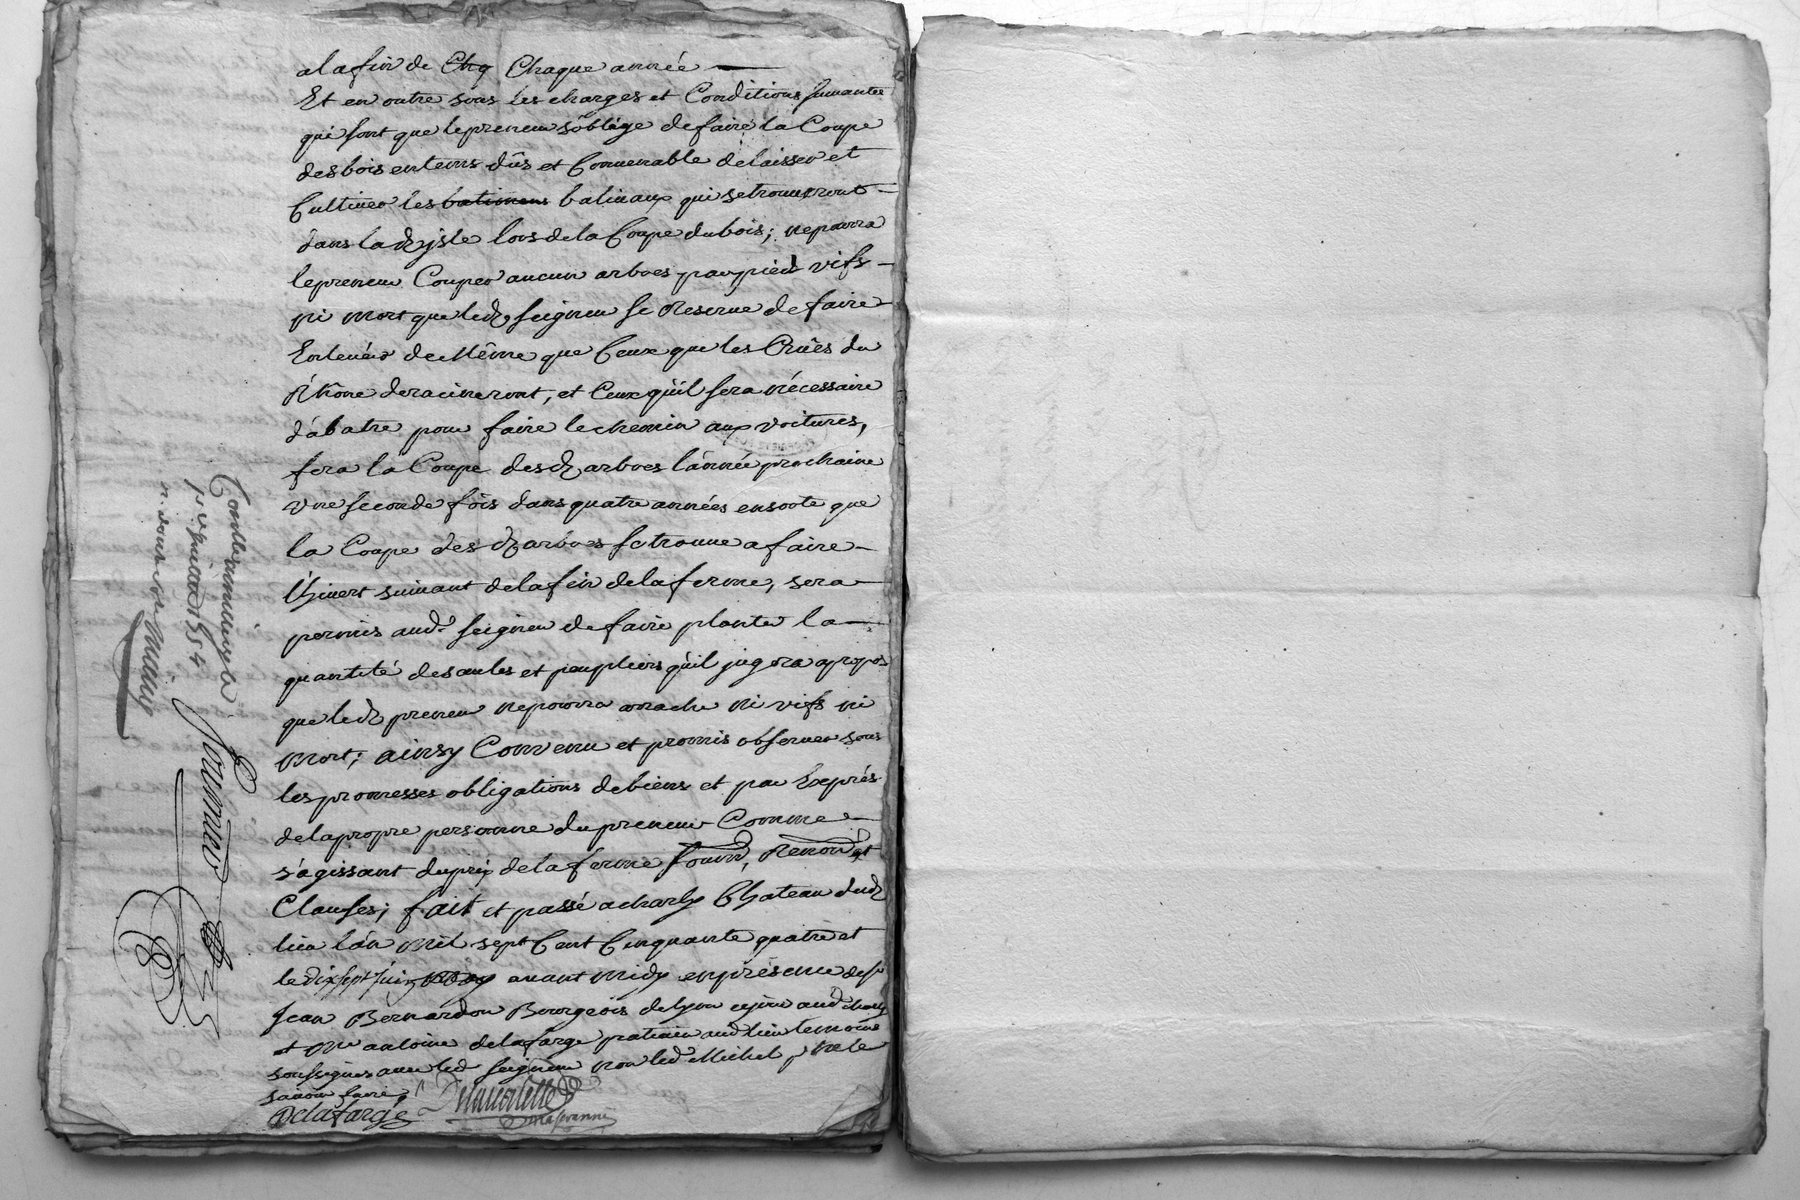 a la fin de Chq Chaque année
Et en outre sous les charges et Conditions suivantes
qui sont que le preneur s'oblige de faire la Coupe
des bois en tems dûs et Convenable de laisser et
Cultiver les batimens balivaux qui se trouveront
dans lad isle lors de la Coupe du bois; ne pourra
le preneur Couper aucun arbres par pied vifs
ni mort que led seigneur se Reserve de faire
Enlever de Même que Ceux que les Crües du
Rhône deracineront, et Ceux qu'il sera nécessaire
d'abatre pour faire le chemin aux voitures,
fera la Coupe desd arbres l'année prochaine
une seconde fois dans quatre années ensorte que
la Coupe desd arbres se trouve a faire
l'hivert suivant de la fin de la ferme, sera
permis aud. seigneur de faire planter la
quantité de saules et peupliers qu'il jugera apropos
que led preneur ne pourra arracher ni vifs ni
Mort; ainsy Convenu et promis observer sous
les promesses obligations de biens et par Exprès
de la propre personne du preneur Comme
s'agissant du prix de la ferme soumn, Renonōn et
Clauses; fait et passé a charly Chateau dud
lieu l'an Mil sept Cent Cinquante quatre et
le dix sept juin avant midy en présence de sr
Jean Bernardon Bourgeois de Lyon aud charly
et Me antoine delafarge praticien aud lieu temoins
soussignés avec led seigneur non led Michel p ne le
savoir faire
Delafarge